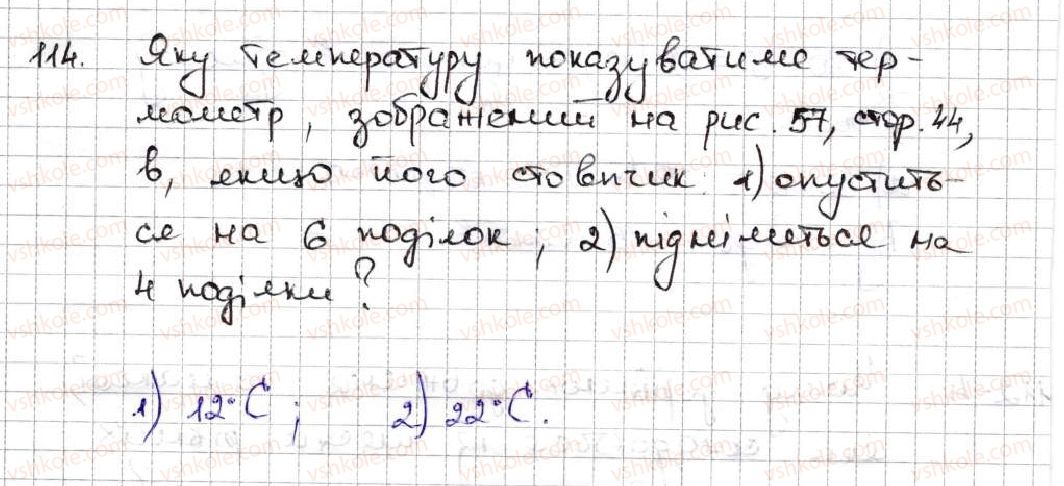 114. Яку температуру показуватиме тер-
мометр, зображений на рис. 57, стор. 44,
в, якщо його стовпчик: 1) опустить-
ся на 6 поділок; 2) підніметься на
4 поділки?
1) 12°C; 2) 22°C.